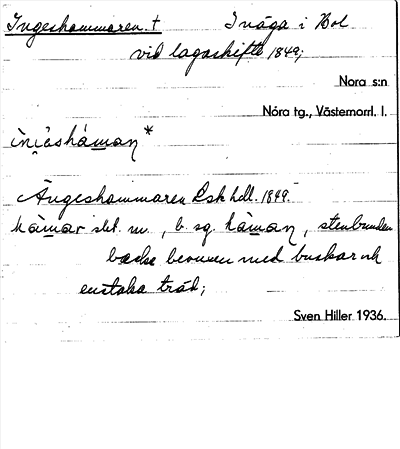 Ingeshammaren † Inäga i Bol
vid lagaskifte 1849;
Nora s:n
Nora tg., Västernorrl. l.
Ängeshammaren Lsk hdl. 1849.
hàmar sbt. m., b. sg. hàman, stenbunden
backe bevuxen med buskar och
enstaka träd;
Sven Hiller 1936.